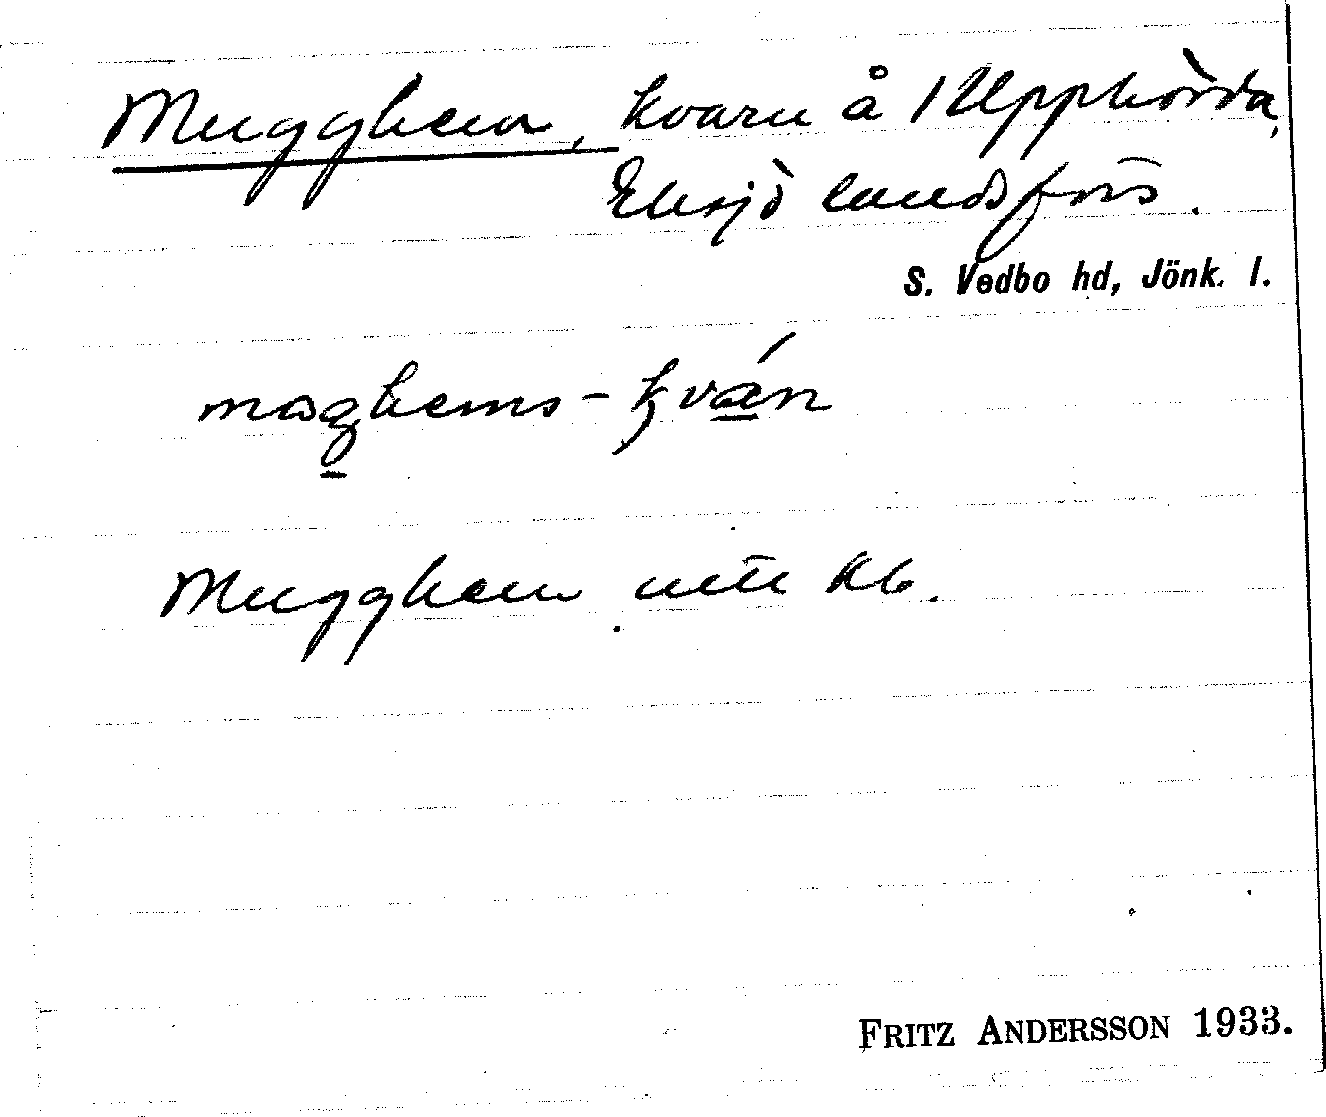 Mugghem, kvarn å 1 Upphörda,
Eksjö landsförs.
S. Vedbo hd, Jönk. l.
mɷghems-kván
Mugghem utt. kb.
FRITZ ANDERSSON 1933.